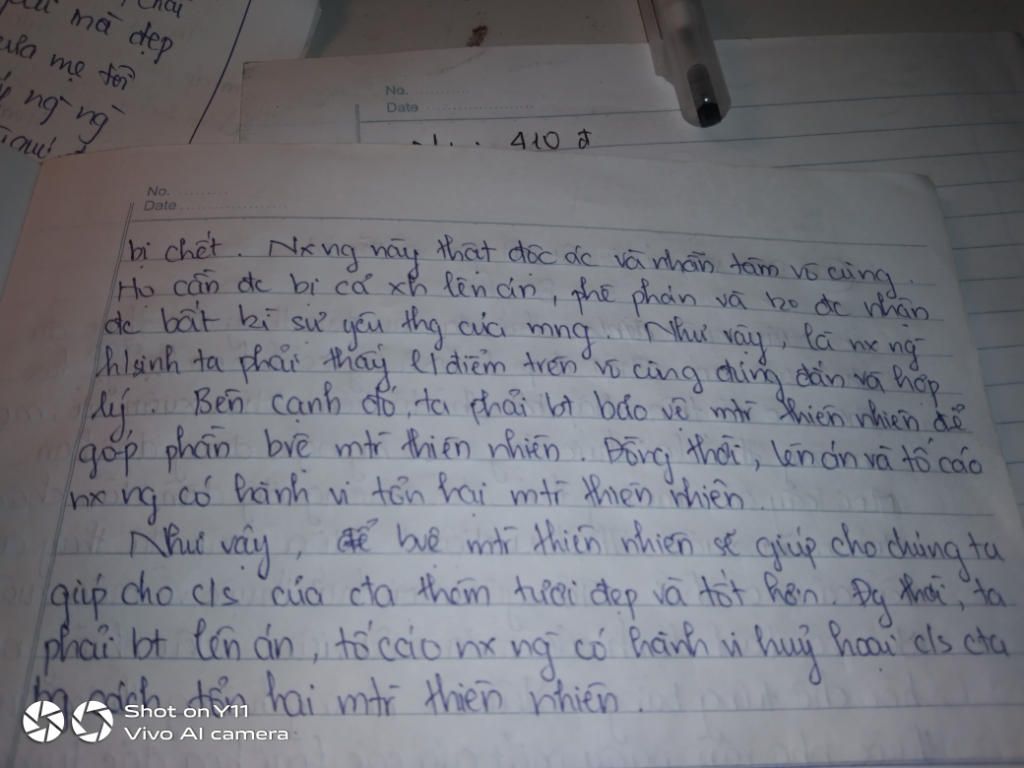 mà đẹp
của mẹ tôi
ng ng
No. ..........
Date ......................
410 đ
No. ..........
Date ......................
bị chết. Nx ng này thật độc ác và nhẫn tâm vô cùng.
Họ cần đc bị cả xh lên án, phê phán và ko đc nhận
đc bất kì sự yêu thg của mng. Như vậy, là nx ng
h/sinh ta phải thấy q/điểm trên vô cùng đúng đắn và hợp
lý. Bên cạnh đó, ta phải bt bảo vệ mtr thiên nhiên để
góp phần bvệ mtr thiên nhiên. Đồng thời, lên án và tố cáo
nx ng có hành vi tổn hại mtr thiên nhiên.
Như vậy, để bvệ mtr thiên nhiên sẽ giúp cho chúng ta
giúp cho c/s của cta thêm tươi đẹp và tốt hơn. Đg thời, ta
phải bt lên án, tố cáo nx ng có hành vi huỷ hoại c/s cta
tổn hại mtr thiên nhiên.
Shot on Y11
Vivo AI camera